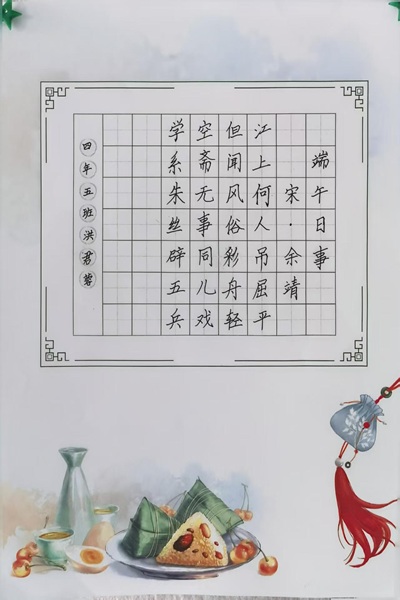 端午日事
宋·余靖
江上何人吊屈平
但闻风俗彩舟轻
空斋无事同儿戏
学系朱丝辟五兵
四年五班洪君蓉